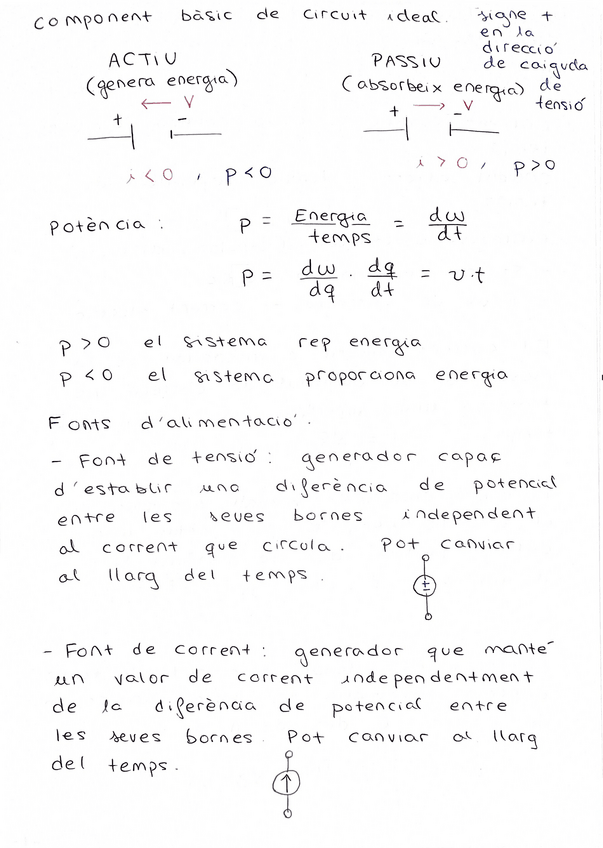 component bàsic de circuit ideal.
signe +
en la
direcció
de caiguda
de
tensió
ACTIU
(genera energia)
← V
+ -
i < 0 , p < 0
PASSIU
(absorbeix energia)
+ → - V
i > 0 , p > 0
potència : P = Energia / temps = dw / dt
P = dw / dq · dq / dt = v · t
p > 0 el sistema rep energia
p < 0 el sistema proporciona energia
Fonts d'alimentació.
- Font de tensió : generador capaç
d'establir una diferència de potencial
entre les seves bornes independent
al corrent que circula. Pot canviar
al llarg del temps.
±
- Font de corrent : generador que manté
un valor de corrent independentment
de la diferència de potencial entre
les seves bornes. Pot canviar al llarg
del temps.
↑